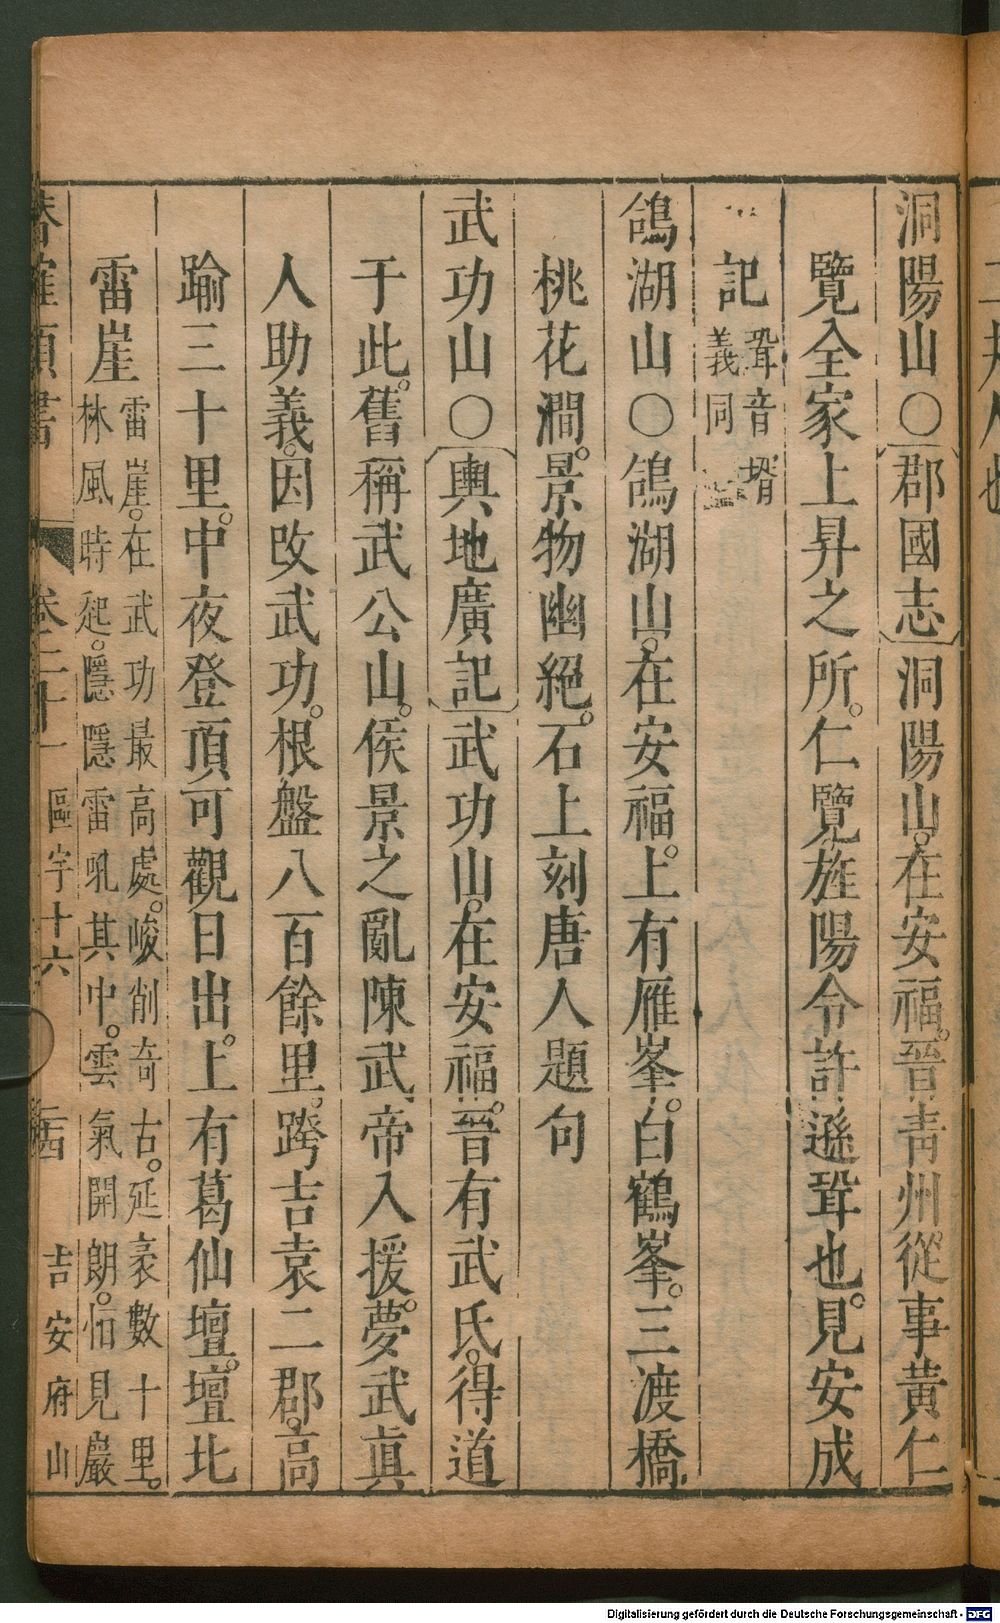 洞陽山○郡國志洞陽山。在安福。晉青州從事黄仁
覽全家上昇之所。仁覽旌陽令許遜聓也。見安成
記聓音壻義同
鴿湖山○鴿湖山。在安福。上有雁峯。白鶴峯。三渡橋
桃花澗。景物幽絕。石上刻唐人題句
武功山○輿地廣記武功山。在安福。晉有武氏。得道
于此。舊稱武公山。侯景之亂陳武帝入援。夢武眞
人助義。因改武功。根盤八百餘里。跨吉袁二郡。高
踰三十里。中夜登頂可觀日出。上有葛仙壇。壇北
雷崖雷崖。在武功最高處。峻削奇古。延袤數十里。
林風時起。隱隱雷吼其中。雲氣開朗。怕見巖
確類書 卷二十一 區宇十六 吉安府山
二邦人也
Digitalisierung gefördert durch die Deutsche Forschungsgemeinschaft - DFG